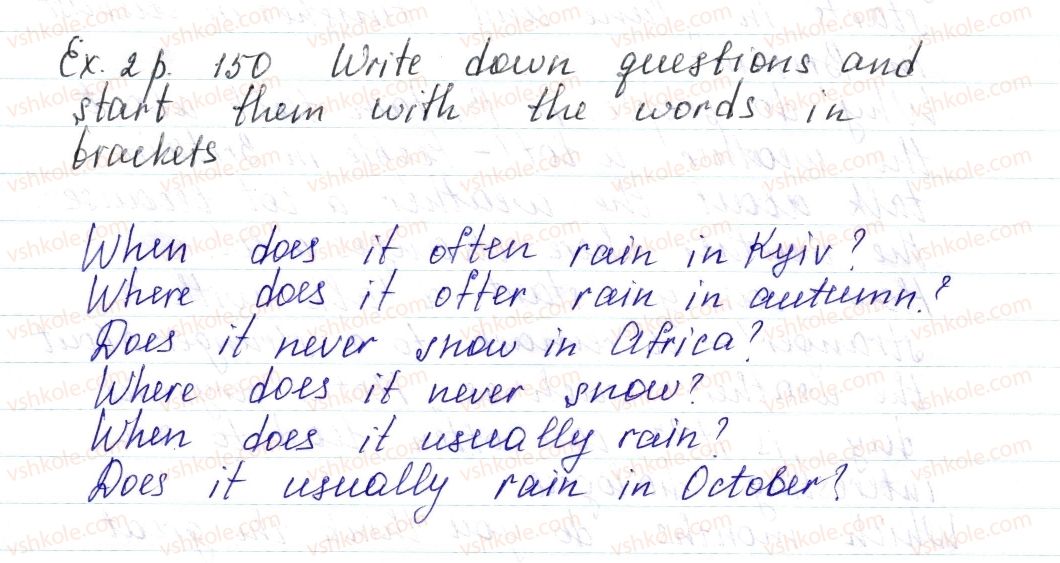 Ex. 2 p. 150 Write down questions and
start them with the words in
brackets
When does it often rain in Kyiv?
Where does it ofter rain in autumn?
Does it never snow in Africa?
Where does it never snow?
When does it usually rain?
Does it usually rain in October?
vshkole.com